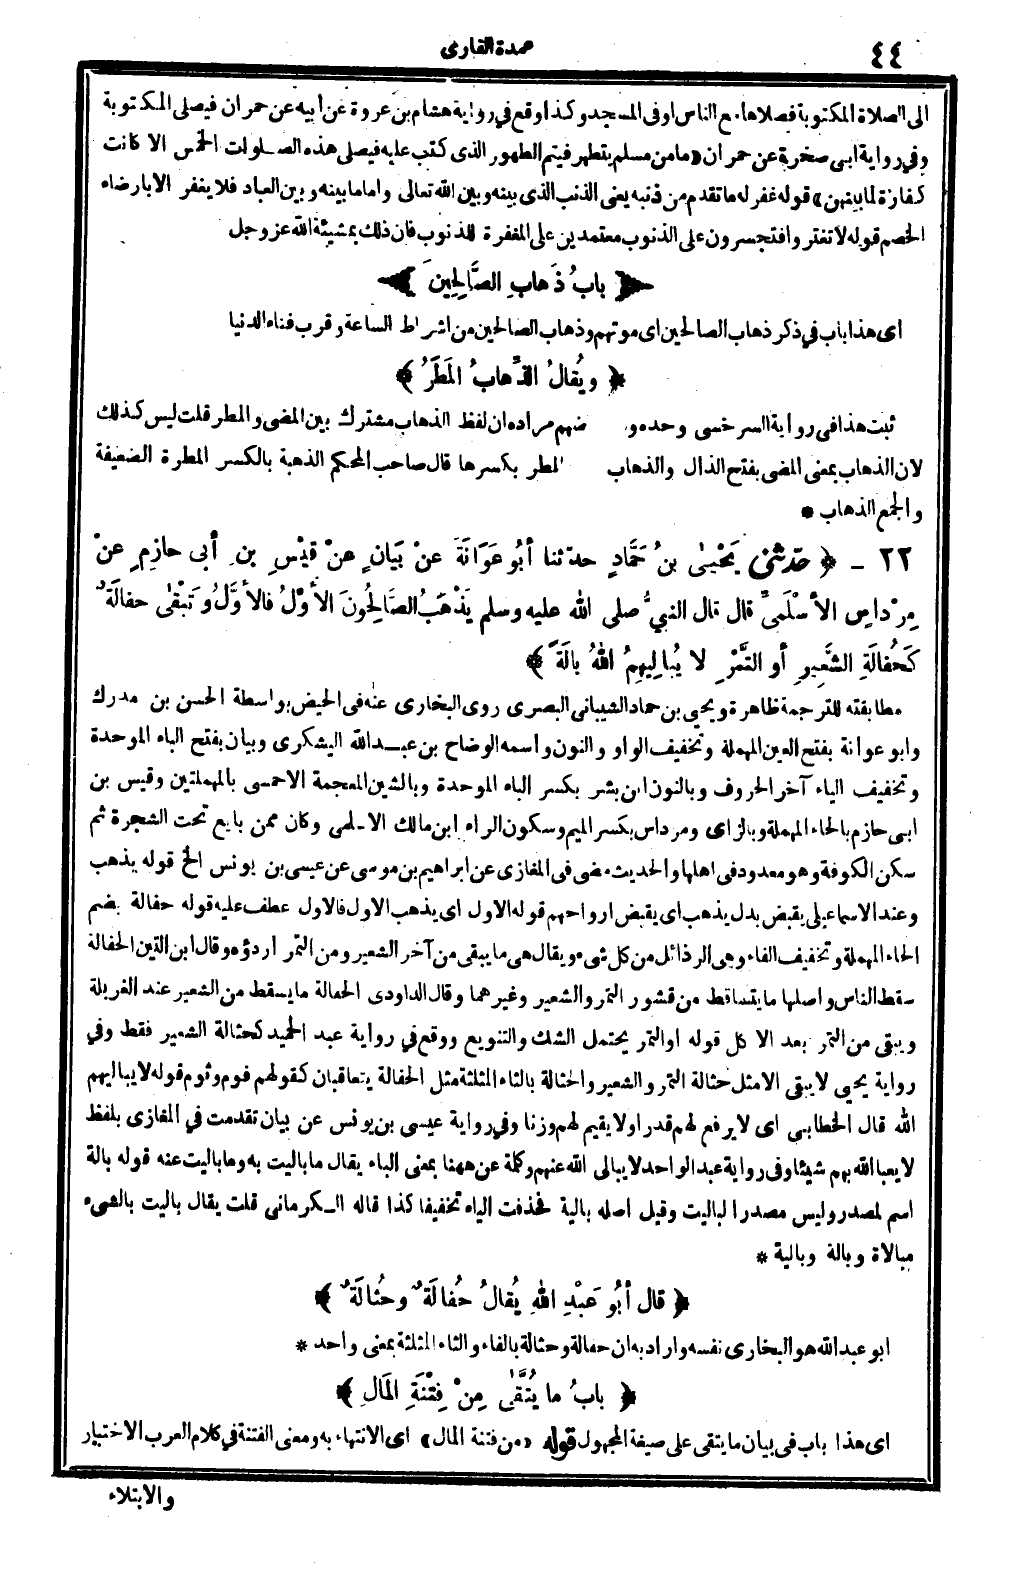 ٤٤
عمدة القارى
الى الصلاة المكتوبة فصلاها مع الناس او فى المسجد وكذا وقع في رواية هشام بن عروة عن ابيه عن حمران فيصلى المكتوبة
وفي رواية ابى صخرة عن حمران «ما من مسلم يتطهر فيتم الطهور الذى كتب عليه فيصلى هذه الصلوات الخمس الا كانت
كفارة لما بينهن» قوله غفر له ما تقدم من ذنبه يعنى الذنب الذى بينه وبين الله تعالى واما ما بينه وبين العباد فلا يغفر الا بارضاء
الخصم قوله لا تغتروا فتجسرون على الذنوب معتمدين على المغفرة للذنوب فان ذلك بمشيئة الله عز وجل
﴿ بابُ ذَهابِ الصَّالِحِينَ ﴾
اى هذا باب في ذكر ذهاب الصالحين اى موتهم وذهاب الصالحين من اشراط الساعة وقرب فناء الدنيا
﴿ ويُقالُ الذَّهابُ المَطَرُ ﴾
ثبت هذا فى رواية السرخسى وحده و ضهم مراده ان لفظ الذهاب مشترك بين المضى والمطر قلت ليس كذلك
لان الذهاب بمعنى المضى بفتح الذال والذهاب المطر بكسرها قال صاحب المحكم الذهبة بالكسر المطرة الضعيفة
والجمع الذهاب *
٢٢ ـ ﴿ حدّثنى يَحْيىٰ بنُ حَمَّادٍ حدثنا أبُو عَوَانَةَ عنْ بَيَانٍ عنْ قَيْسِ بنِ أبى حازِمٍ عنْ
مِرْداسٍ الأسْلَمِىِّ قال قال النبىُّ صلى الله عليه وسلم يَذْهَبُ الصَّالِحُونَ الأوَّلُ فالأوَّلُ وَتَبْقَىٰ حفالَةٌ
كَحُفالَةِ الشَّعِيرِ أو التَّمْرِ لا يُبالِيهِمُ اللهُ بالَةً ﴾
مطابقته للترجمة ظاهرة ويحيى بن حماد الشيبانى البصرى روى البخارى عنه فى الحيض بواسطة الحسن بن مدرك
وابو عوانة بفتح العين المهملة وتخفيف الواو والنون واسمه الوضاح بن عبد الله اليشكرى وبيان بفتح الباء الموحدة
وتخفيف الياء آخر الحروف وبالنون ابن بشر بكسر الباء الموحدة وبالشين المعجمة الاحمسى بالمهملتين وقيس بن
ابى حازم بالحاء المهملة وبالزاى ومرداس بكسر الميم وسكون الراء ابن مالك الاسلمى وكان ممن بايع تحت الشجرة ثم
سكن الكوفة وهو معدود فى اهلها والحديث مضى فى المغازى عن ابراهيم بن موسى عن عيسى بن يونس الخ قوله يذهب
وعند الاسماعيلى يقبض بدل يذهب اى يقبض ارواحهم قوله الاول اى يذهب الاول فالاول عطف عليه قوله حفالة بضم
الحاء المهملة وتخفيف الفاء وهى الرذائل من كل شىء ويقال هى ما يبقى من آخر الشعير ومن التمر اردؤه وقال ابن التين الحفالة
سقط الناس واصلها ما يتساقط من قشور التمر والشعير وغيرهما وقال الداودى الحفالة ما يسقط من الشعير عند الغربلة
ويبقى من التمر بعد الاكل قوله او التمر يحتمل الشك والتنويع ووقع في رواية عبد الحميد كحثالة الشعير فقط وفي
رواية يحيى لا يبقى الا مثل حثالة التمر والشعير والحثالة بالثاء المثلثة مثل الحفالة يتعاقبان كقولهم فوم وثوم قوله لا يباليهم
الله قال الخطابى اى لا يرفع لهم قدرا ولا يقيم لهم وزنا وفي رواية عيسى بن يونس عن بيان تقدمت في المغازى بلفظ
لا يعبا الله بهم شيئا وفى رواية عبد الواحد لا يبالى الله عنهم وكلمة عن ههنا بمعنى الباء يقال ما باليت به وما باليت عنه قوله بالة
اسم لمصدر وليس مصدرا لباليت وقيل اصله بالية فحذفت الياء تخفيفا كذا قاله الكرمانى قلت يقال باليت بالشىء
مبالاة وبالة وبالية *
﴿ قال أبُو عَبْدِ اللهِ يُقالُ حُفالَةٌ وحُثالَةٌ ﴾
ابو عبد الله هو البخارى نفسه واراد به ان حفالة وحثالة بالفاء والثاء المثلثة بمعنى واحد *
﴿ بابُ ما يُتَّقَىٰ مِنْ فِتْنَةِ المَالِ ﴾
اى هذا باب فى بيان ما يتقى على صيغة المجهول قوله «من فتنة المال» اى الانتهاء به ومعنى الفتنة في كلام العرب الاختبار
والابتلاء